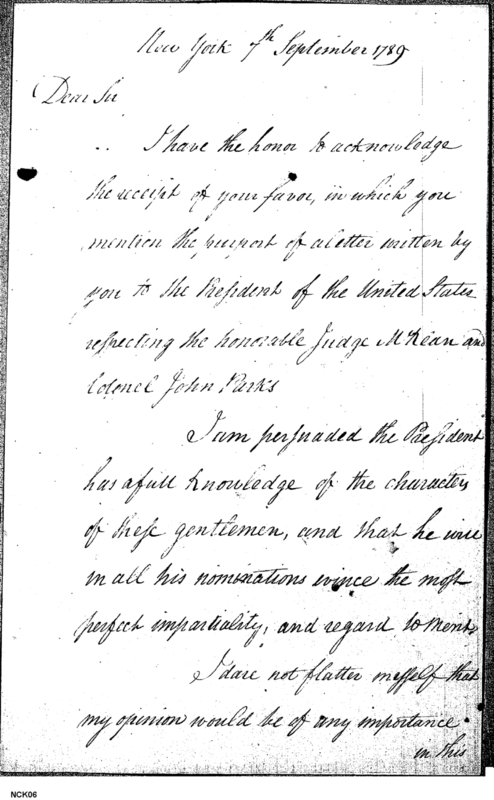 New York 7th September 1789
Dear Sir
I have the honor to acknowledge
the receipt of your favor, in which you
mention the purport of a letter written by
you to the President of the United States
respecting the honorable Judge McKean and
Colonel John Parks
I am persuaded the President
has a full knowledge of the characters
of these gentlemen, and that he will
in all his nominations evince the most
perfect impartiality, and regard to merit
I dare not flatter myself that
my opinion would be of any importance
in this
NCK06